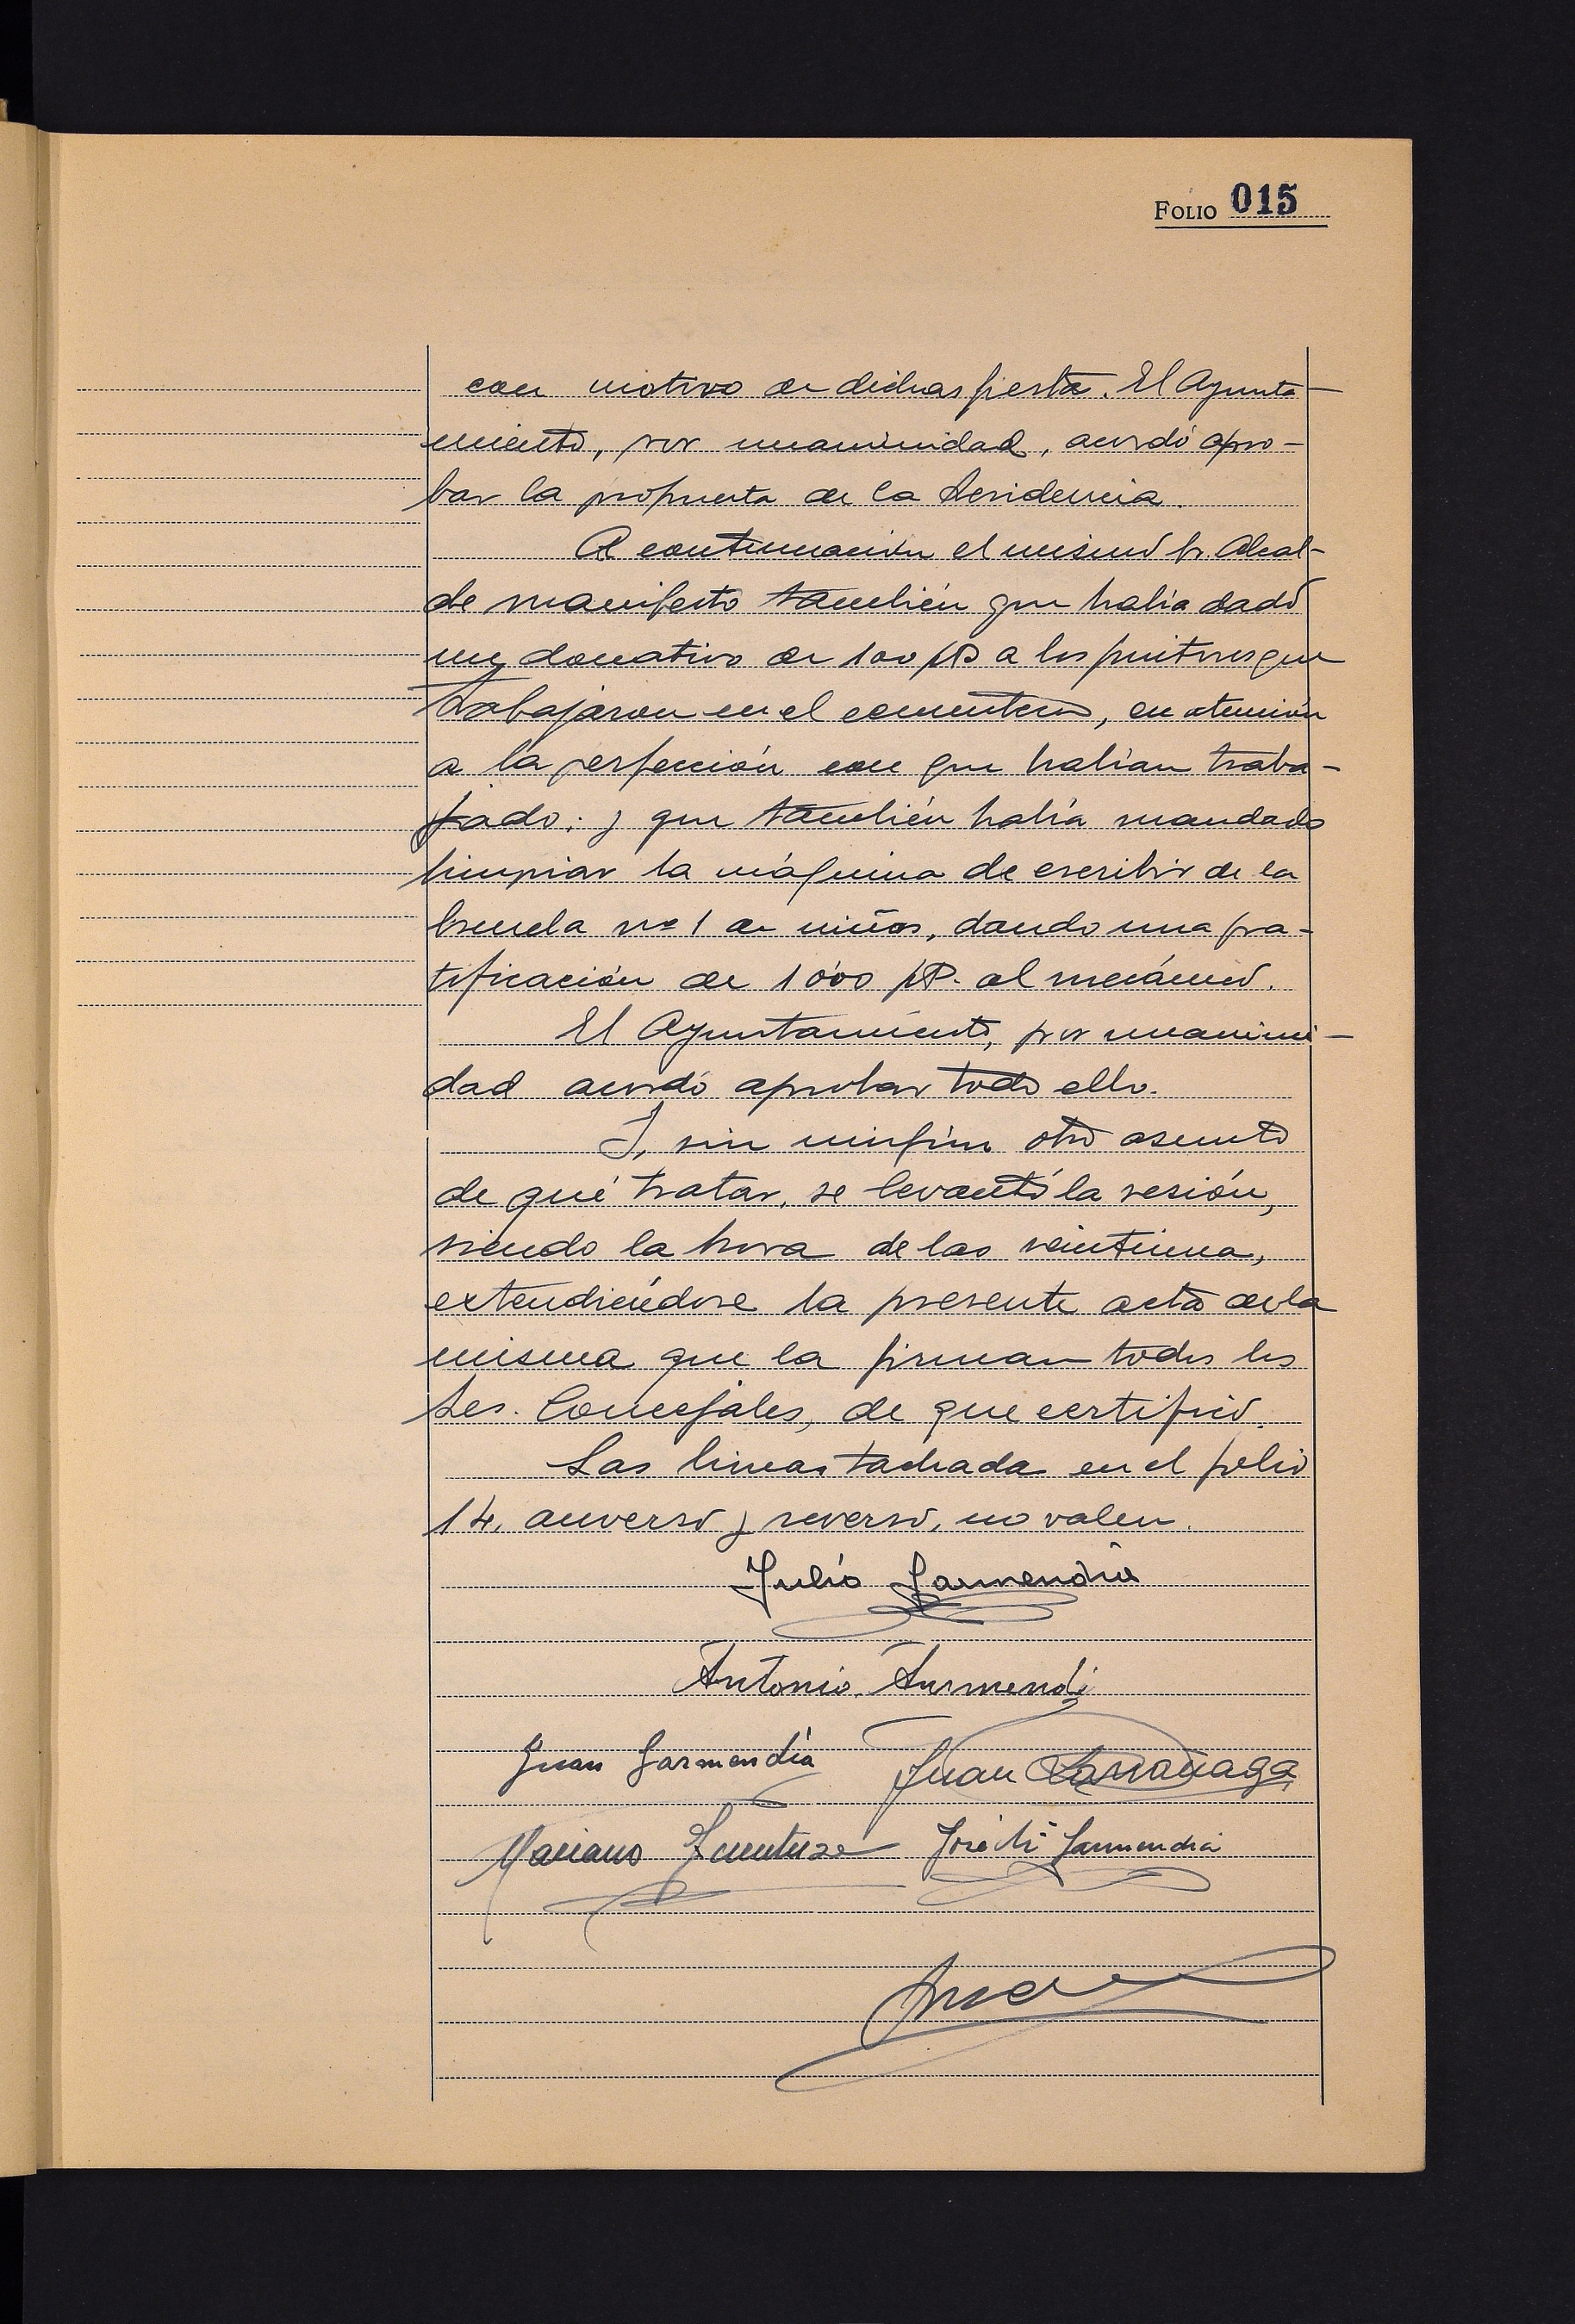 FOLIO 015
con motivo de dichas fiesta. El Ayunta-
miento, por unanimidad, acordó apro-
bar la propuesta de la Presidencia.
A continuación el mismo Sr. Alcal-
de manifesto también que había dado
un donativo de 100 pts a los pintores que
trabajaron en el cementerio, en atención
a la perfección con que habían traba-
jado; y que también había mandado
limpiar la máquina de escribir de la
Escuela nº 1 de niños, dando una gra-
tificación de 100 pts. al mecánico.
El Ayuntamiento, por unanimi-
dad acordó aprobar todo ello.
Y, sin ningún otro asunto
de qué tratar, se levantó la sesión,
siendo la hora de las veintiuna,
extendiéndose la presente acta de la
misma que la firman todos los
Sres. Concejales, de que certifico.
Las lineas tachada en el folio
14, anverso y reverso, no valen.
Julio Garmendia
Antonio Armendi
Juan Garmendia Juan Larrañaga
Mariano José Mª Garmendia